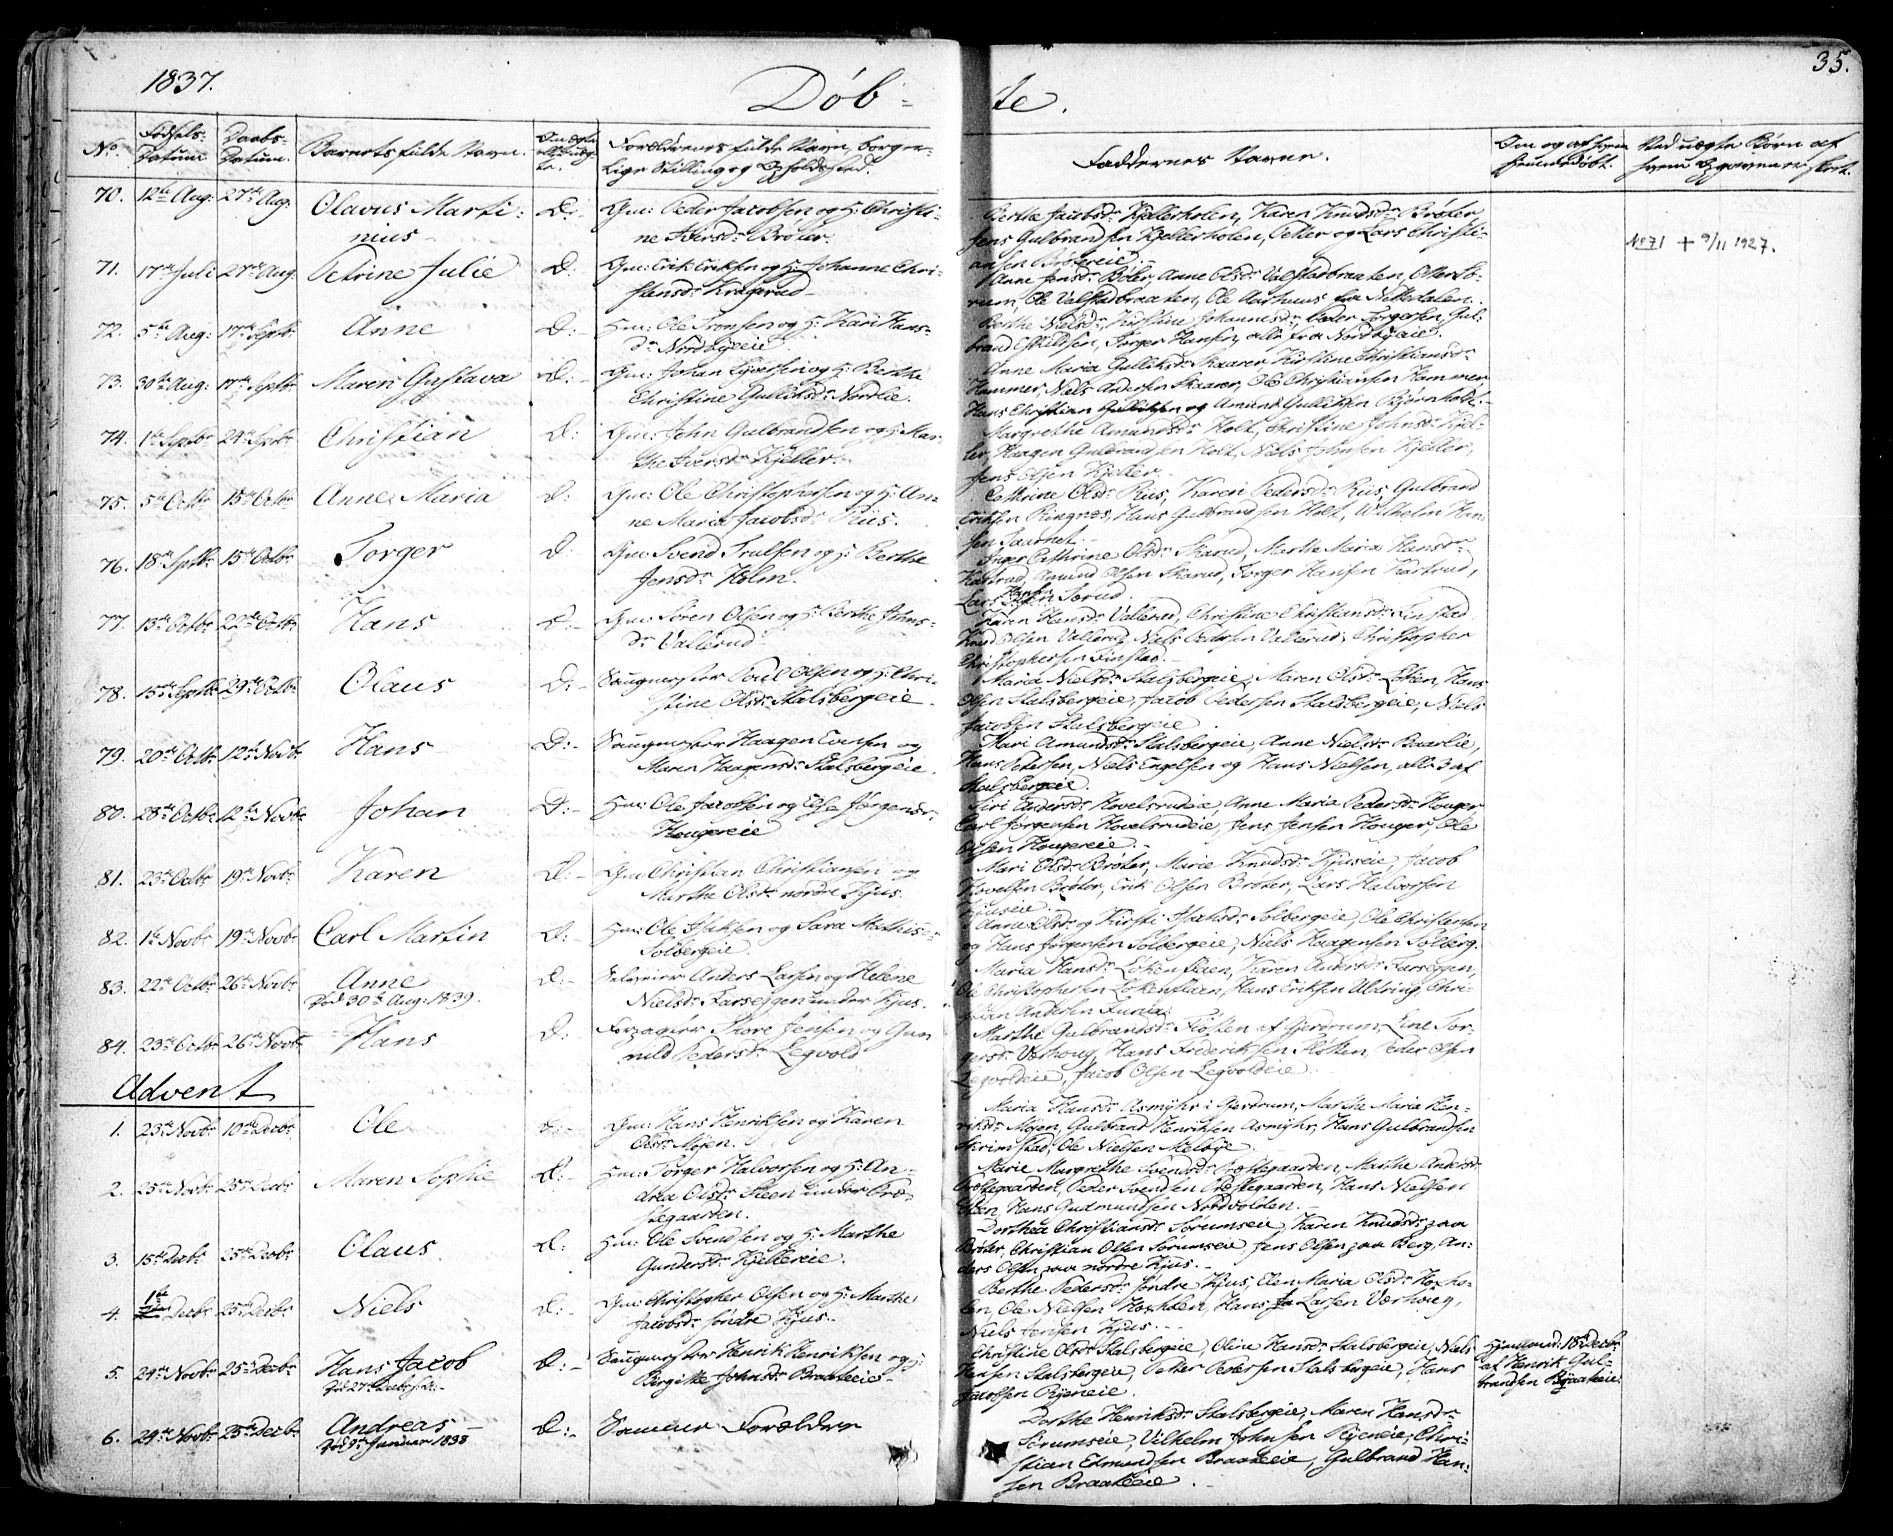 1837.
Døb-
te.
35.
No.
Fødsels-
Datum.
Daabs-
Datum.
Barnets fulde Navn.
Forældrenes fulde Navn, borger-
lige Stilling og Opholdssted.
Faddernes Navne.
70. 12te Aug: 27de Aug: Olavus Marti- D:- Gm: Peder Jacobsen og H: Christi-
nius ne Iversdr Brøter.
Berthe Jacobsdr Kjellerholen, Karen Knudsdr Brøter,
Jens Gulbrandsen Kjellerholen, Petter og Lars Christi-
ansen Brøtereie.
71. 17de Juli 27de Aug. Petrine Julie D: Gm: Erik Eriksen og H: Johanne Chri-
stensdr Kragerud
Anne Jensdr Bøler, Anne Olsdr Valstadbraaten,
Ole Valstadbraaten, Ole Aarhuus fra Nittedalen.
No 71 + 9/11 1927.
72. 5te Aug: 17de Septbr Anne D: Hm: Ole Tronsen og H: Kari Hans-
dr Nordbyeie
Berthe Nielsdr, Kirstine Johannesdr, Peder Torgersen, Gul-
brand Eskildsen, Torger Hansen, alle fra Nordbyeie.
73. 30te Aug: 17de Septbr Maren Gustava D:- Gm: Johan Syversen og H: Berthe
Christine Gulliksdr Nordlie.
Anne Maria Gulliksdr Skaarer, Kirstine Christiansdr
Hammer, Niels Andersen Skaarer, Ole Christiansen Hammer,
Hans Christian Gulliksen og Amund Gulliksen Bjørnholt.
74. 1te Septbr 24de Septbr Christian D: Gm: John Gulbrandsen og H: Mar-
the Iversdr Kjeller.
Margrethe Amundsdr Holt, Christine Johnsdr Kjel-
ler, Haagen Gulbrandsen Holt, Niels Johnsen Kjeller,
Jens Olsen Kjeller
75. 5te Octbr 15de Octbr Anne Maria D: Gm: Ole Christophersen og H: An-
ne Maria Jacobsdr Riis.
Cathrine Olsdr Riis, Karen Pedersdr Riis, Gulbrand
Eriksen Ringnes, Hans Gulbrandsen Holt, Wilhelm Han-
sen
76. 18de Septbr 15de Octbr Torger D: Gm: Svend Trulsen og H: Berthe
Jensdr Holm.
Inger Cathrine Olsdr Skarud, Marthe Maria Hansdr
Kastrud, Amund Olsen Skarud, Torger Hansen Kastrud,
Lars Hansen Sørud.
77. 13de Octbr 22de Octbr Hans D:- Gm: Søren Olsen og H: Berthe Johns-
dr Vallerud
Karen Hansdr Vallerud, Christine Christiansdr Finstad
Knud Olsen Vallerud, Niels Pedersen Vallerud, Christopher
Christophersen Finstad.
78. 15de Septbr 29de Octbr Olaus D:- Saugmester Poul Olsen og H: Chri-
stine Olsdr Stalsbergeie.
Maria Nielsdr Stalsbergeie, Maren Olsdr Løken, Hans
Olsen Stalsbergeie, Jacob Pedersen Stalsbergeie, Niels
Jacobsen Stalsbergeie
79. 20de Octbr 12te Novbr Hans D:- Saugmester Haagen Evensen og
Maren Haagensdr Stalsbergeie.
Mari Amundsdr Stalsbergeie, Anne Nielsdr Baarlie,
Hans Petersen, Niels Engelsen og Hans Nielsen, alle 3 af
Stalsbergeie.
80. 28de Octbr 12te Novbr Johan D:- Hm: Ole Jacobsen og Else Jørgensdr.
Haugereie
Siri Andersdr Hovelsrudeie, Anne Maria Pedersdr Houger
Carl Jørgensen Hovelsrudeie, Jens Jensen Houger, Ole
Olsen Hougereie.
81. 23de Octbr 19de Novbr Karen D:- Gm: Christian Christiansen og
Marthe Olsdr nordre Kjus.
Mari Olsdr Brøter, Marie Knudsdr Kjuseie, Jacob
Hovelsen Brøter, Erik Olsen Brøter, Lars Halvorsen
Kjuseie.
82. 1te Novbr 19de Novbr Carl Martin D:- Hm: Ole Isaksen og Sara Mathisdr
Solbergeie.
Anne Olsdr og Kirsti Isaksdr Solbergeie, Ole Christensen
og Hans Jørgensen Solbergeie, Niels Haagensen Solberg.
83. 22de Octbr 26de Novbr Anne D:- Selveier Anders Larsen og Helene
Død 30te Aug: 1839. Nielsdr Farseggen under Kjus.
Maria Hansdr Løkenflaen, Karen Andersdr Farseggen,
Ole Christophersen Løkenflaen, Hans Eriksen Aldring, Chri-
stian Andersen Furua.
84. 23de Octbr 26de Novbr Hans D: Tore Jensen og Gun
nild Pedersdr Legvold
Marthe Gulbrandsdr Flotten af Gjerdrum, Line Tor-
gersdr Vølhoug, Hans Frederiksen Flotten, Peder Olsen
Legvoldeie, Jacob Olsen Legvoldeie.
Advent
1. 23de Novbr 10de Decbr Ole D:- Gm: Hans Henriksen og Karen
Olsdr Mojen.
Maria Hansdr Asmyhr i Gjerdrum, Marthe Maria Hen-
riksdr Mojen, Gulbrand Henriksen Asmyhr, Hans Gulbrandsen
Skrimstad, Ole Nielsen Melbye.
2. 25de Novbr 25de Decbr Maren Sophie D:- Hm: Torger Halvorsen og H: An-
drea Olsdr Steen under Præ-
stegaarden.
Marie Margrethe Svendsdr Præstegaarden, Marthe Andersdr
Præstegaarden, Peder Svendsen Præstegaarden, Hans Nielsen
Steen, Hans Gudmundsen Nordvolden.
3. 15de Decbr 25de Decbr Olaus D: Hm: Ole Svendsen og H: Marthe
Gundersdr Kjellereie.
Dorthea Christiansdr Sørumseie, Karen Knudsdr paa
Brøter, Christian Olsen Sørumseie, Jens Olsen paa Berg, An-
ders Olsen paa nordre Kjus.
4. 1te Decbr 25de Decbr Niels D:- Gm: Christopher Olsen og H: Marthe
Jacobsdr søndre Kjus.
Berthe Pedersdr søndre Kjus, Ellen Maria Olsdr Hoxho-
len, Ole Nielsen Hoxholen, Hans Larsen Værhoug,
Niels Jensen Kjus.
5. 24de Novbr 25de Decbr Hans Jacob D:- Saugmester Henrik Henriksen og H:
Død 27de Decbr Bergitte Johnsdr Braateeie
Christine Olsdr Stalsbergeie, Oline Hansdr Stalsbergeie, Niels
Hansen Stalsbergeie, Petter Pedersen Stalsbergeie, Hans
Jacobsen Ryeneie.
Hjemmed: 18de Decbr
af Henrik Gul-
brandsen Braateeie.
6. 24de Novbr 25de Decbr Andreas D:- Samme Forældre
Død Januar 1838
Dorthe Henriksdr Stalsbergeie, Maren Hansdr
Sørumseie, Vilhelm Johnsen Ryeneie, Chri-
stian Edmundsen Braateeie, Gulbrand Han-
sen Braateeie.